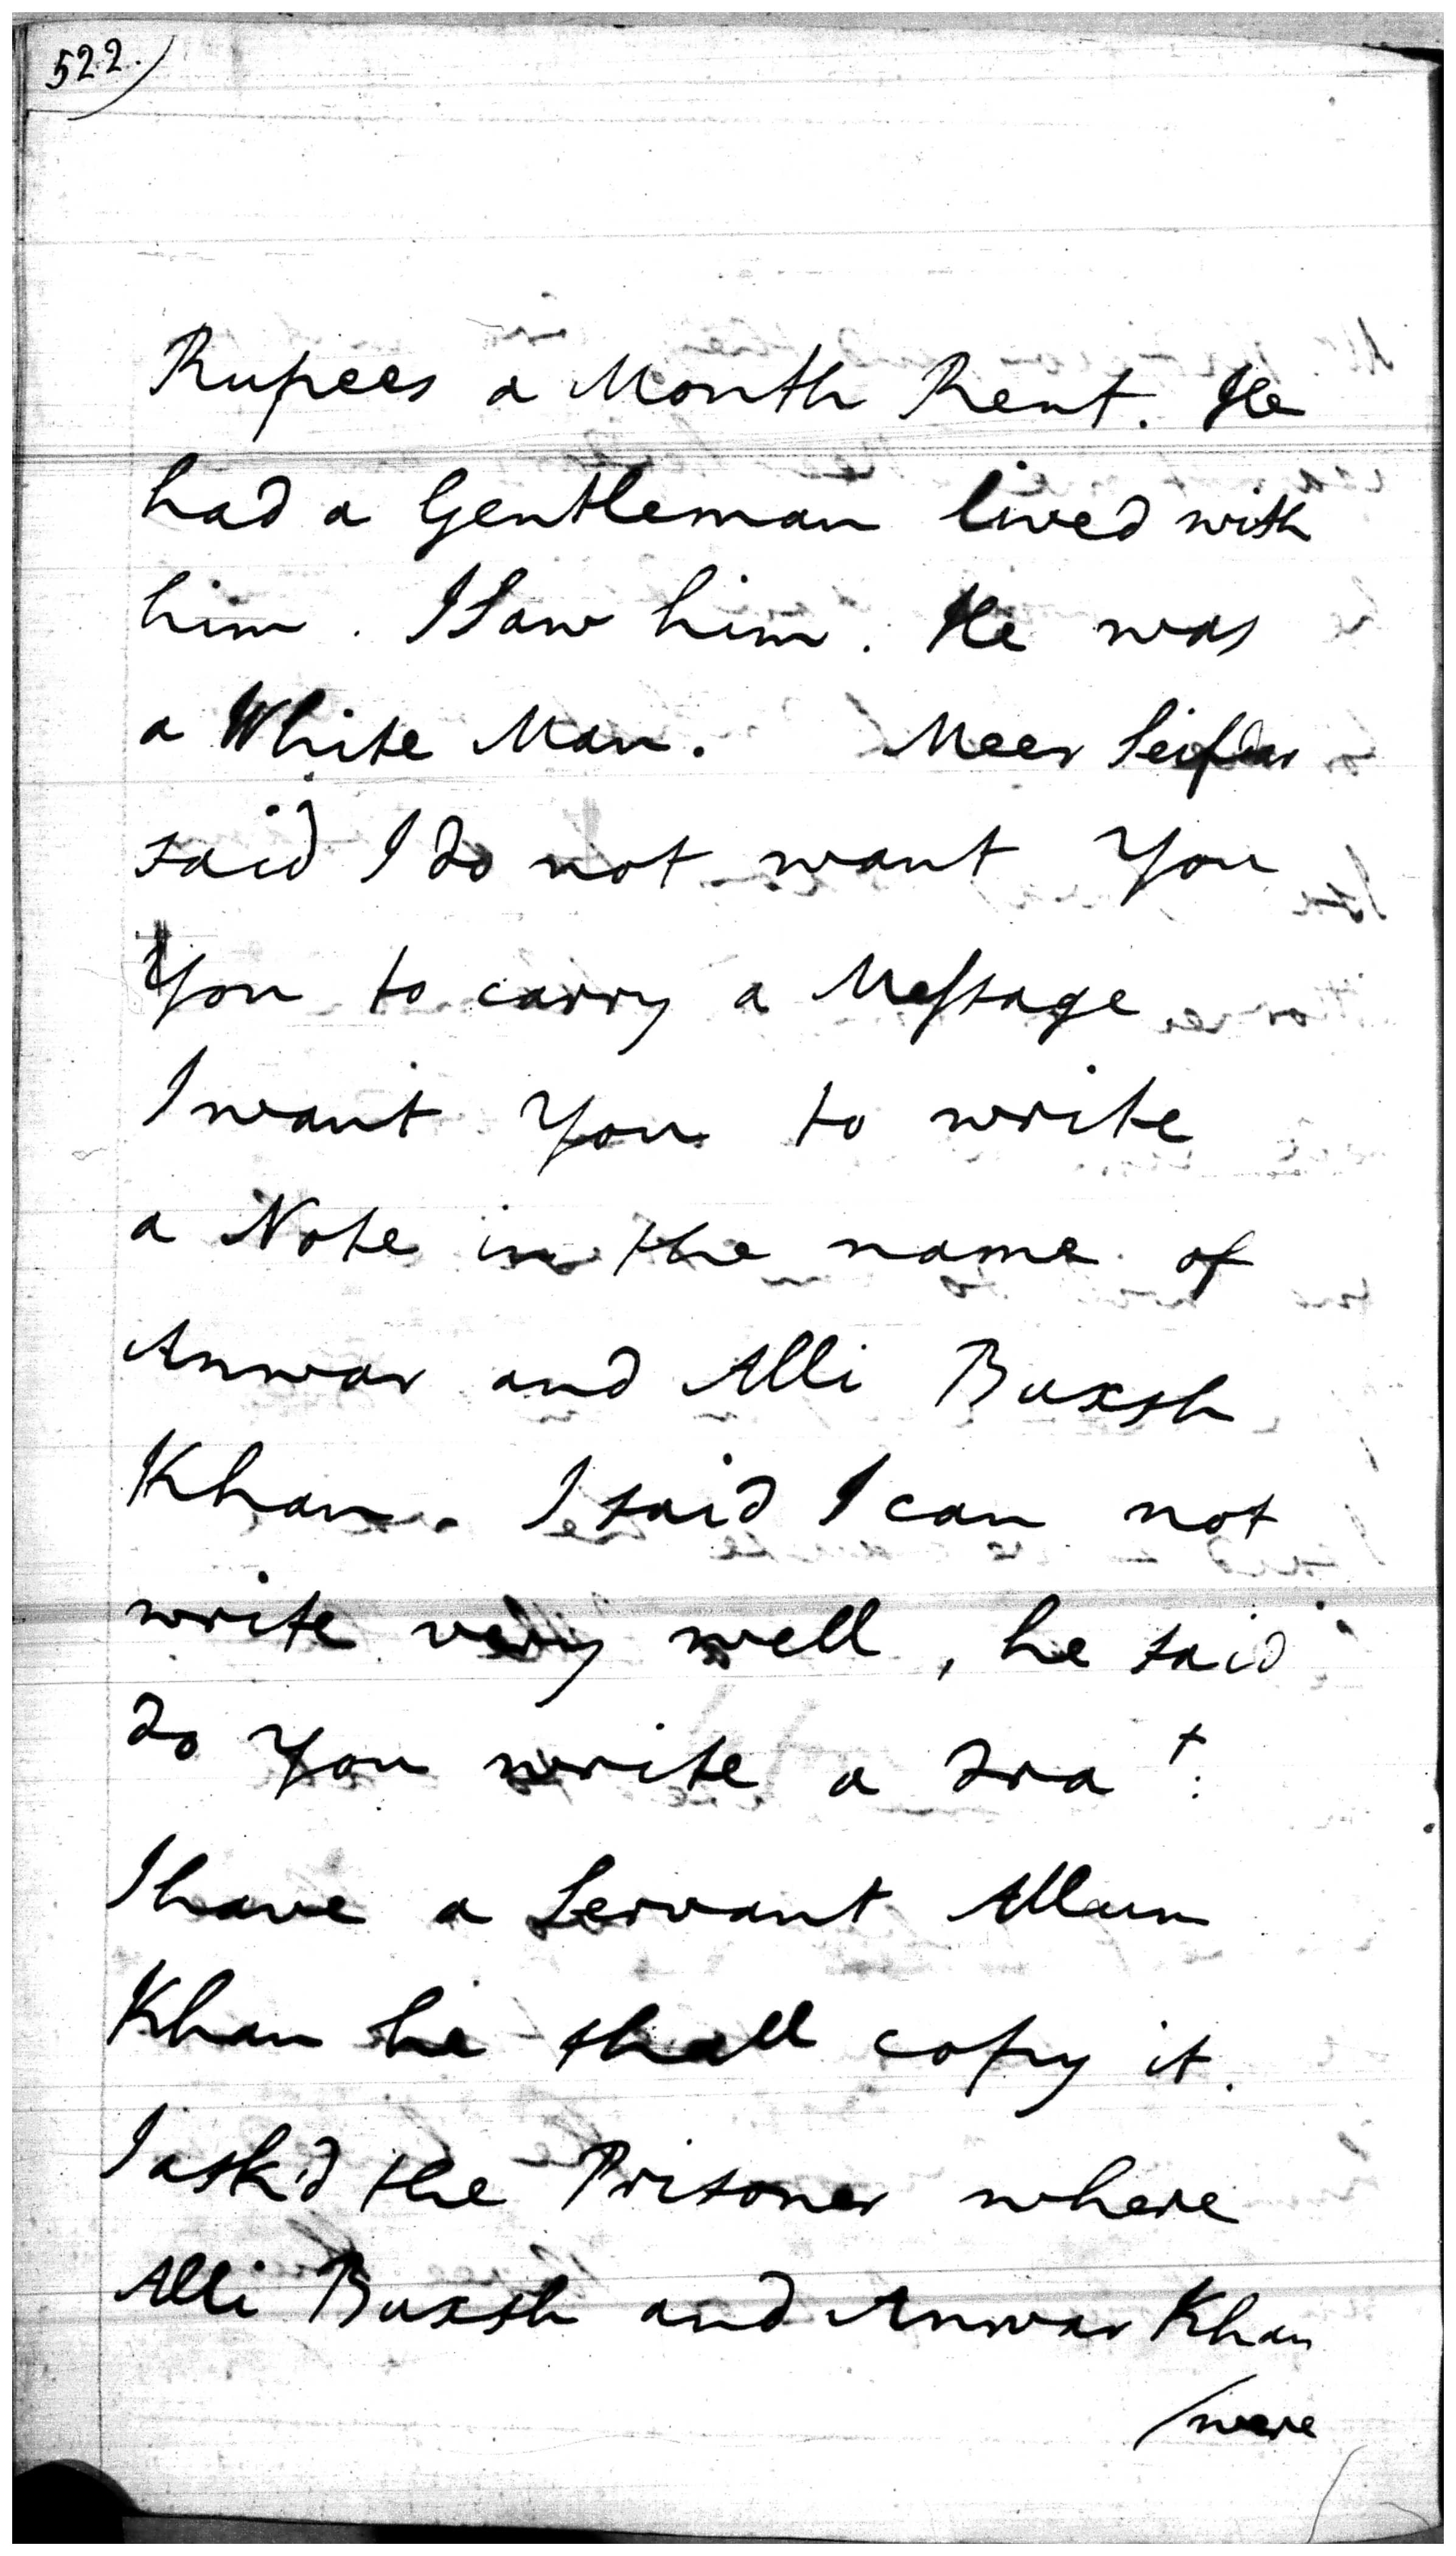 522.)
Rupees a Month Rent. He
had a Gentleman lived with
him. I Saw him. He was
a White Man. Meer
said I do not want You
You to carry a Message
I want You to write
a Note in the name of
Anwar and Alli Buxsh
Khan. I said I can not
write very well, he said
do You write a dra t.
I have a Servant Allum
Khan he shall copy it.
I ask'd the Prisoner where
Alli Buxsh and Anwar Khan
/were